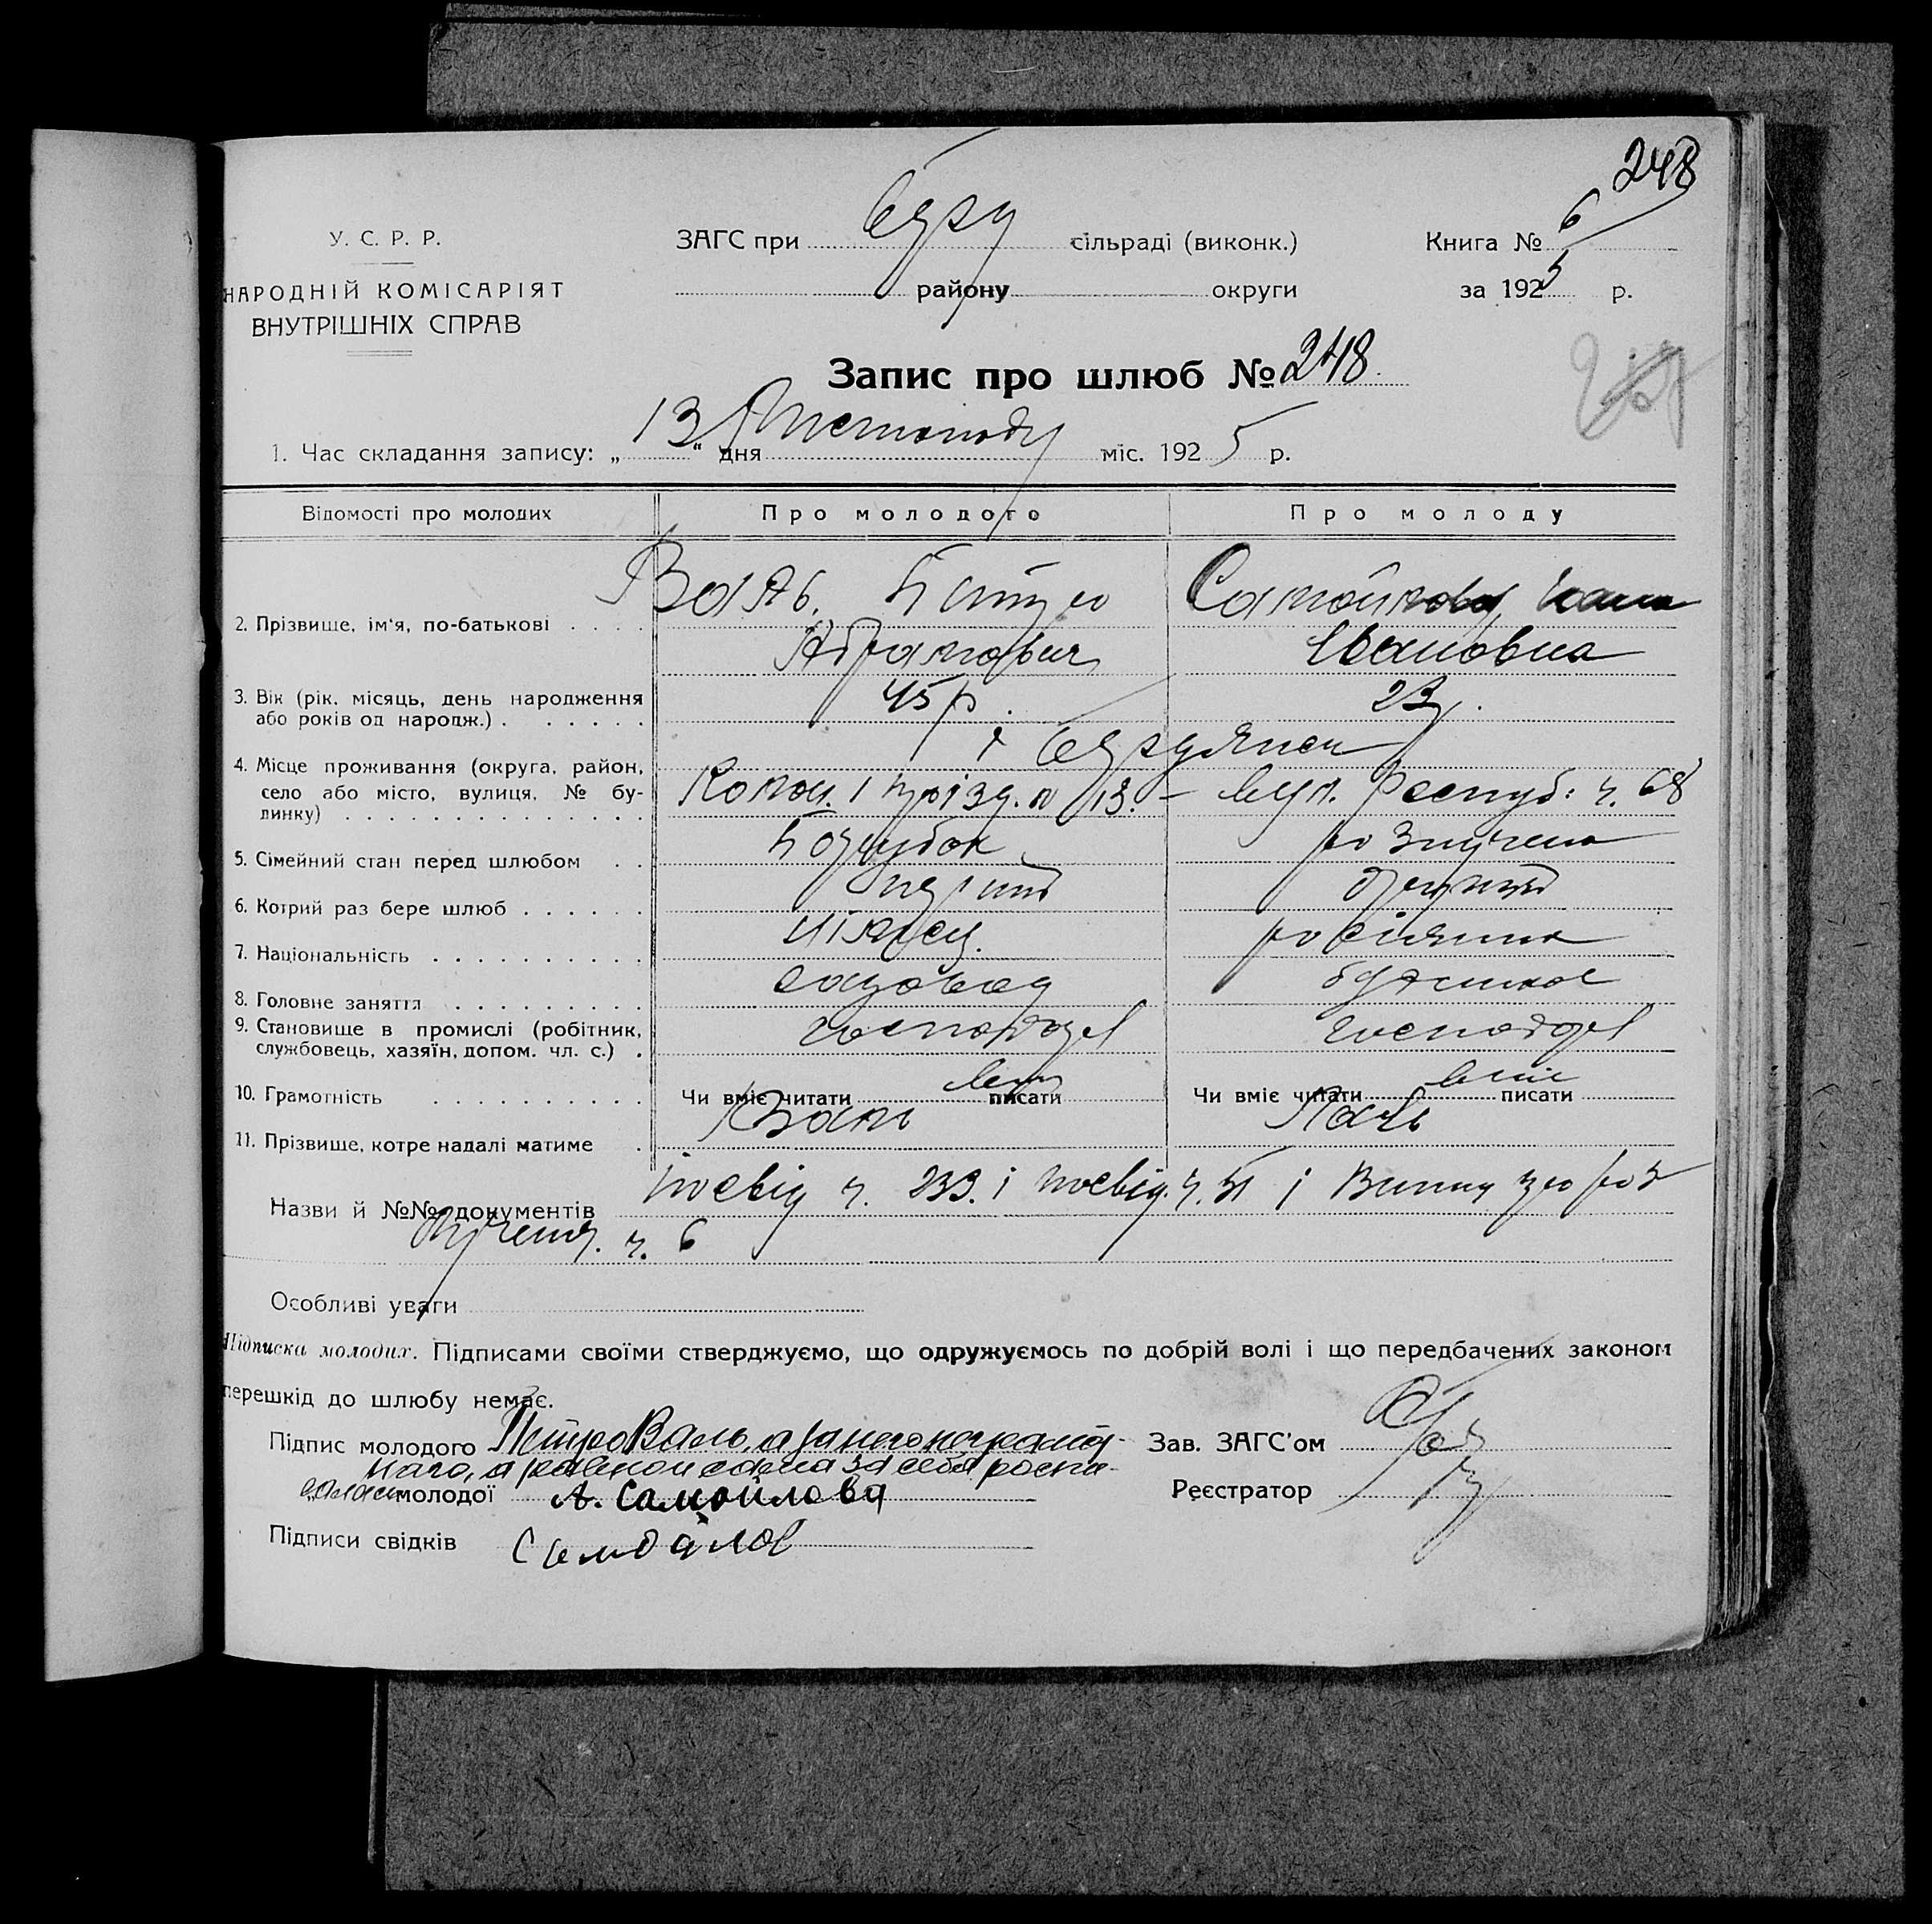 248
У. С. Р. Р.
НАРОДНІЙ КОМІСАРІЯТ
ВНУТРІШНІХ СПРАВ
ЗАГС при сільраді (виконк.)
району округи
Книга № 6
за 1925 р.
Запис про шлюб № 248
1. Час складання запису: „13“ дня Листопаду міс. 1925 р.
Відомості про молодих Про молодого Про молоду
2. Прізвище, ім'я, по-батькові . . . . Валь Петро Самойлова
Абрамович Івановна
3. Вік (рік, місяць, день народження
або років од народж.) . . . . . . . 45 р. 23 р.
4. Місце проживання (округа, район,
село або місто, вулиця, № бу-
динку) . . . . . . . . . . . . . . Колон. 1 проізд. № 13. – вул. Респуб: ч. 68
5. Сімейний стан перед шлюбом . . розлучена
6. Котрий раз бере шлюб . . . . . . перший другий
7. Національність . . . . . . . . . . німець росіянка
8. Головне заняття . . . . . . . . .
9. Становище в промислі (робітник,
службовець, хазяїн, допом. чл. с.) .
10. Грамотність . . . . . . . . . . Чи вміє читати вміє писати Чи вміє читати вміє писати
11. Прізвище, котре надалі матиме . Валь Валь
Назви й №№ документів посвід ч. 233. і посвід. ч. 51 і Виписка про роз
лучення. ч. 6
Особливі уваги
Підписка молодих. Підписами своїми стверджуємо, що одружуємось по добрій волі і що передбачених законом
перешкід до шлюбу немає.
Підпис молодого Петро Валь, а за него неграмот-
наго, а равно и сама за себя роспи-
салась
„ молодої А. Самойлова
Підписи свідків Самойлов
Зав. ЗАГС'ом
Реєстратор